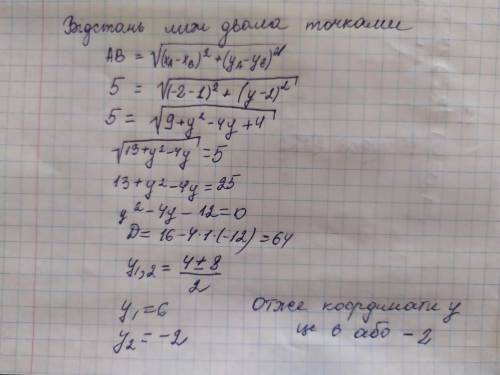 Відстань між двома точками
AB = √(xA-xB)² + (yA-yB)²
5 = √(-2-1)² + (y-2)²
5 = √9+y²-4y+4
√13+y²-4y = 5
13+y²-4y = 25
y²-4y-12=0
D = 16-4·1·(-12) = 64
y1,2 = 4±8/2
y1 = 6
y2 = -2
Отже координати y
це 6 або -2